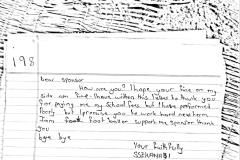 198
Dear sponsor
How are you? I hope your fine on my
side am fine. I have written this letter to thank you
for paying me my school fees but I have performed
poorly but I promise you to work hard next term
I am foot baller support me sponsor thank
you
bye bye
Your faithfully